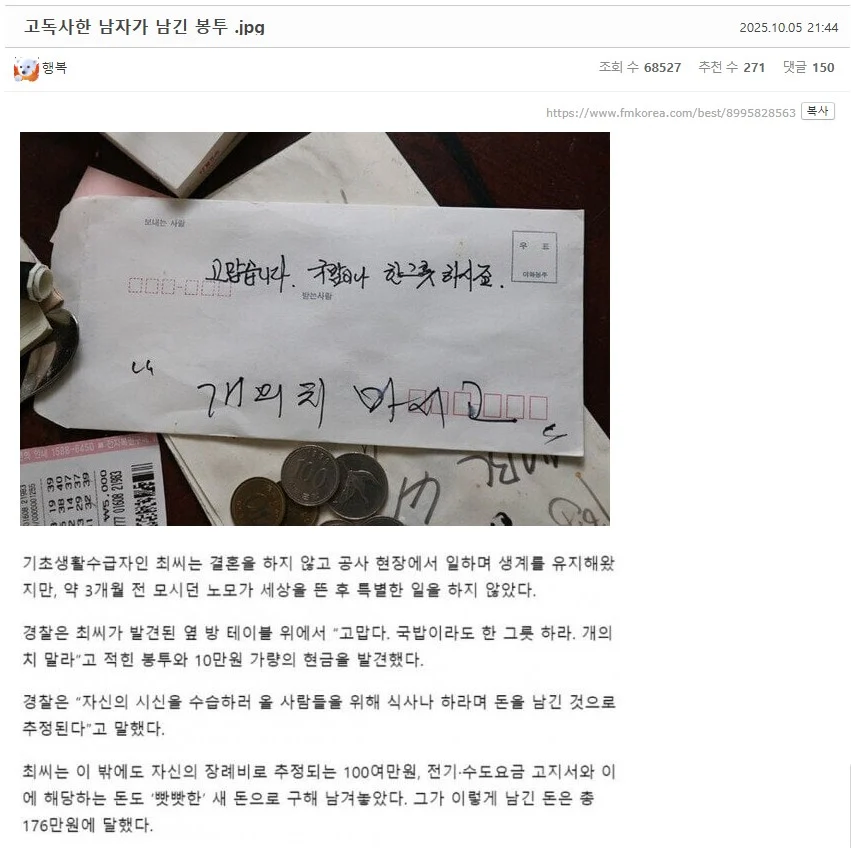 고독사한 남자가 남긴 봉투 .jpg
2025.10.05 21:44
행복
조회 수 68527 추천 수 271 댓글 150
https://www.fmkorea.com/best/8995828563 복사
보내는 사람
우 표
고맙습니다. 국밥이나 한그릇 하시죠.
받는사람
"개의치 마세고"
100
₩5,000
기초생활수급자인 최씨는 결혼을 하지 않고 공사 현장에서 일하며 생계를 유지해왔
지만, 약 3개월 전 모시던 노모가 세상을 뜬 후 특별한 일을 하지 않았다.
경찰은 최씨가 발견된 옆 방 테이블 위에서 “고맙다. 국밥이라도 한 그릇 하라. 개의
치 말라”고 적힌 봉투와 10만원 가량의 현금을 발견했다.
경찰은 “자신의 시신을 수습하러 올 사람들을 위해 식사나 하라며 돈을 남긴 것으로
추정된다”고 말했다.
최씨는 이 밖에도 자신의 장례비로 추정되는 100여만원, 전기·수도요금 고지서와 이
에 해당하는 돈도 ‘빳빳한’ 새 돈으로 구해 남겨놓았다. 그가 이렇게 남긴 돈은 총
176만원에 달했다.